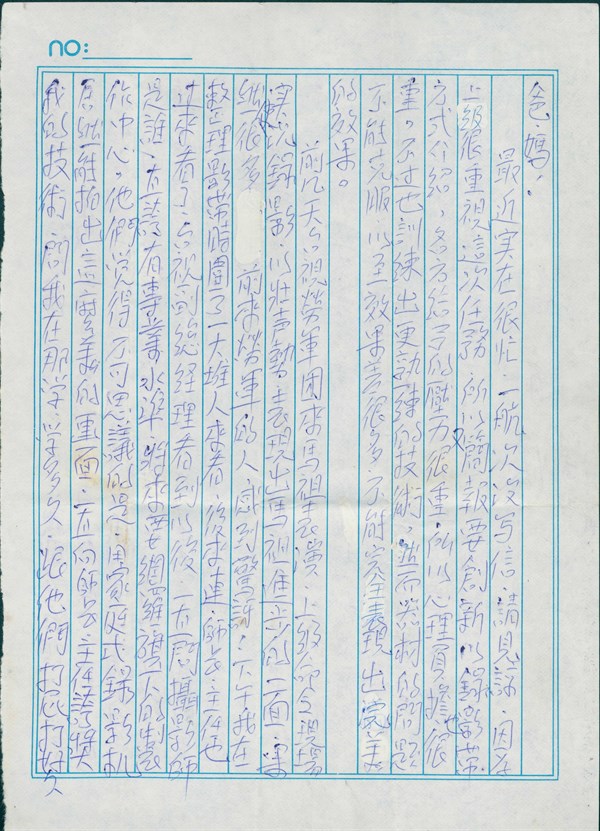 no:
爸媽：
最近实在很忙，一航次沒写信，請見諒，因為
上級很重視這次任務，所以簡報要創新以錄影帶
方式介紹，各方給予的壓力很重，所以心理負擔也很
重，不过也訓練出更熟練的技術，然而器材的問題
不能克服以至效果差很多，不能完全表現出完美
的效果。
前几天台視勞軍团來馬祖表演，上級命令現場
实況錄影，以壯声勢，表現出馬祖進步的一面，果
然很多 前來勞軍的人，感到驚訝，下午我在
整理影帶時圍了一大堆人來看，後來連師長、主任也
过來看了，台視副總經理看到以後，一直問攝影師
是誰，直誇有專業水準，將來要網羅旗下的製
作中心，他們覺得不可思議的是，用家庭式錄影机
居然能拍出這麼美的畫面，直向師長、主任誇獎
我的技術，問我在那学，学多久，跟他們打屁打好